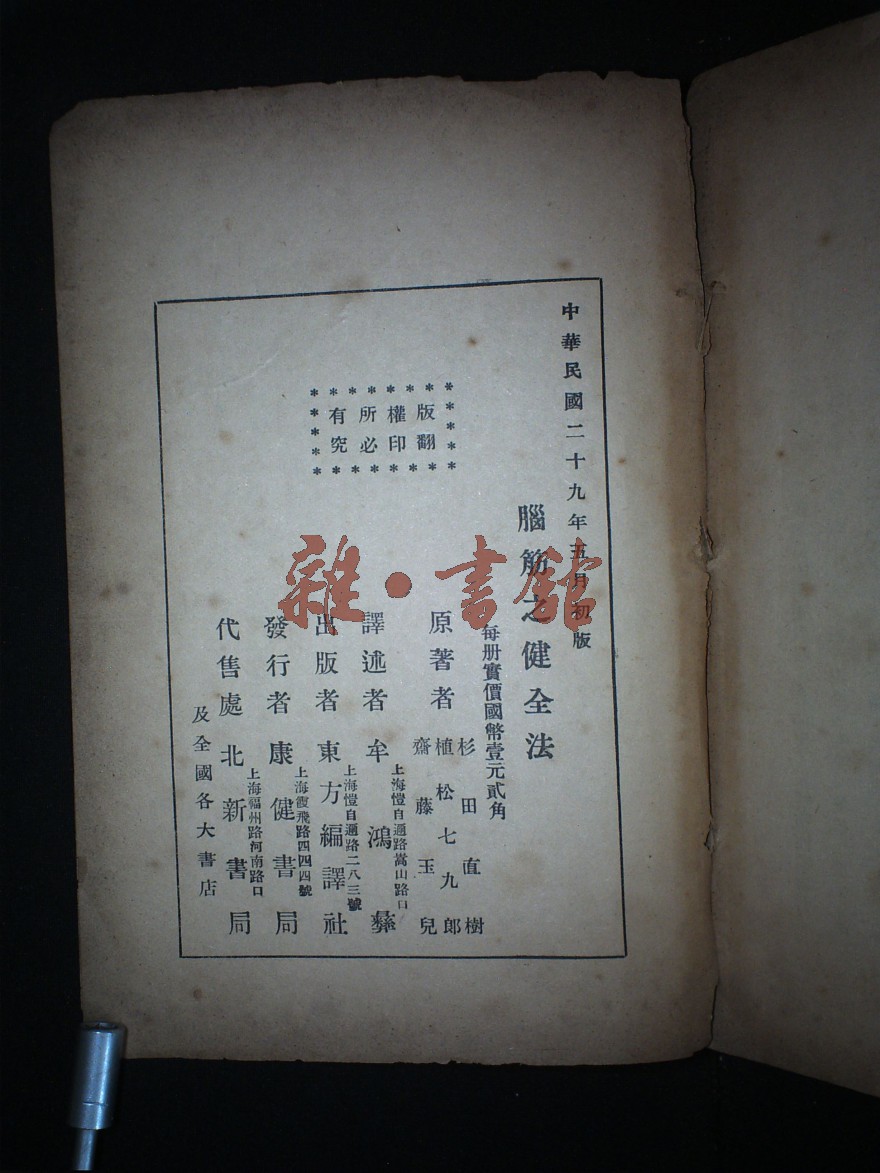 中華民國二十九年五月初版
腦筋之健全法
每册實價國幣壹元貳角
原著者
杉田直樹
植松七九郎
齋藤玉兒
譯述者 牟鴻彝
上海愷自邇路嵩山路口
出版者 東方編譯社
上海愷自邇路二八三號
發行者 康健書局
上海霞飛路四四四號
代售處 北新書局
上海福州路河南路口
及全國各大書店
版權所有
翻印必究
雜·書館